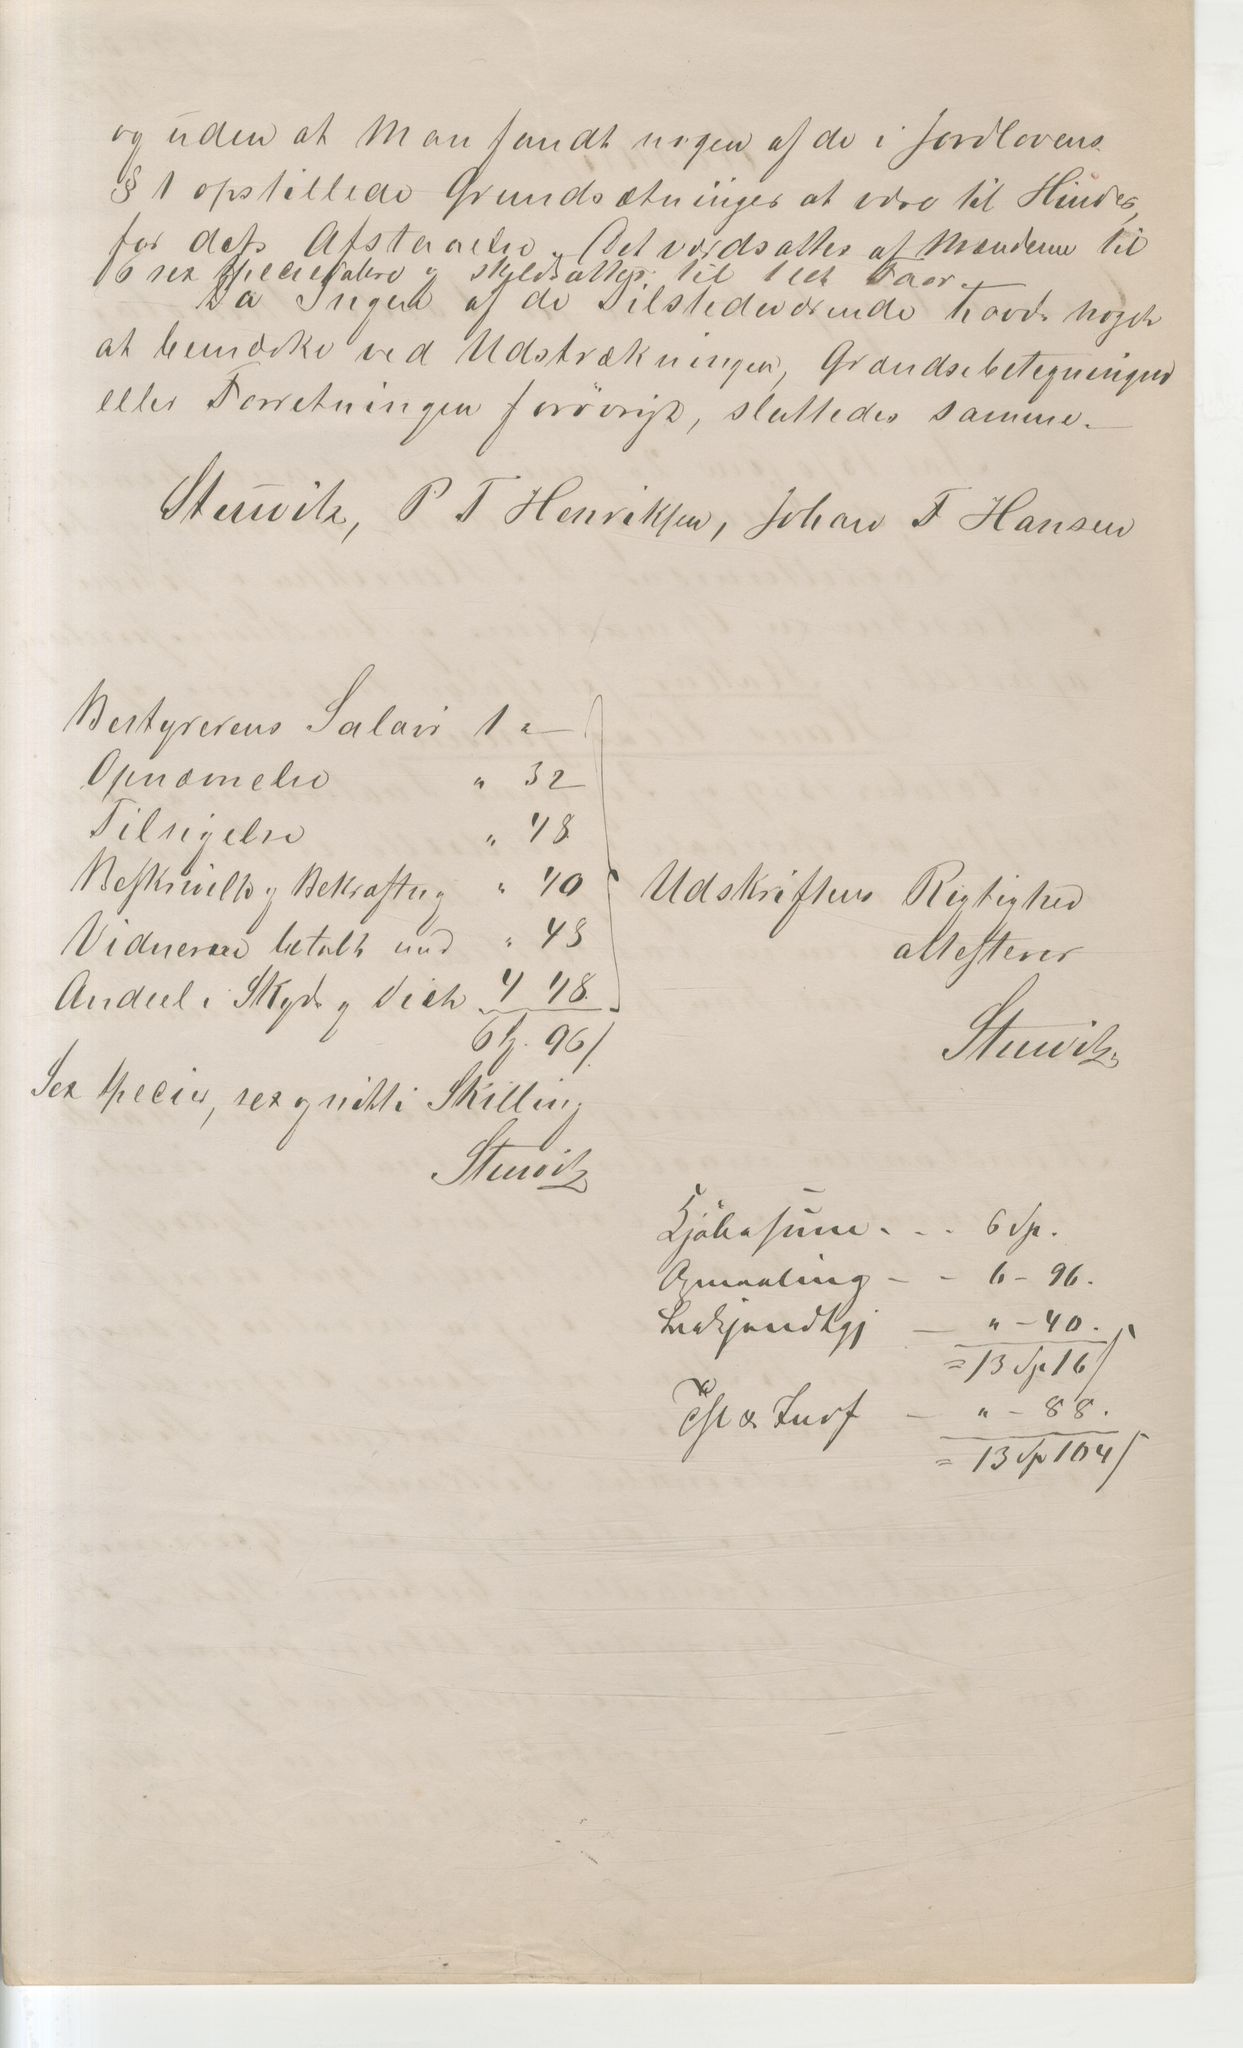 og uden at Man fandt nogen af de i Jordlovens
§ 1 opstillede Grundsætninger at være til Hinder,
for dets Afstaaelse. Det værdsattes af Mændene til
6 sex Speciedalere og skyldsattes til 1 et Faar.
Da Ingen af de Tilstedeværende havde noget
at bemærke ved Udstrækningen, Grændsebetegningen
eller Forretningen forøvrigt, sluttedes samme.
Stuwitz, P T Henriksen, Johan F Hansen
Bestyrerens Salair 1 "
Opnævnelse " 32
Tilsigelse " 48
Beskrivelse og Bekræftng " 40
Vidnerne betalt med " 48
Andeel i Skyds og Diæt 4 48
6 96/
Sex Specier, sex og nitti Skilling
Stuwitz
Udskriftens Rigtighed
attesterer
Stuwitz
Kjøbesum - - - 6 Sp.
Opmaaling - - 6 - 96.
Bekjendtgj - " - 40.
= 13 Sp 16/
- " - 88.
= 13 Sp 104/